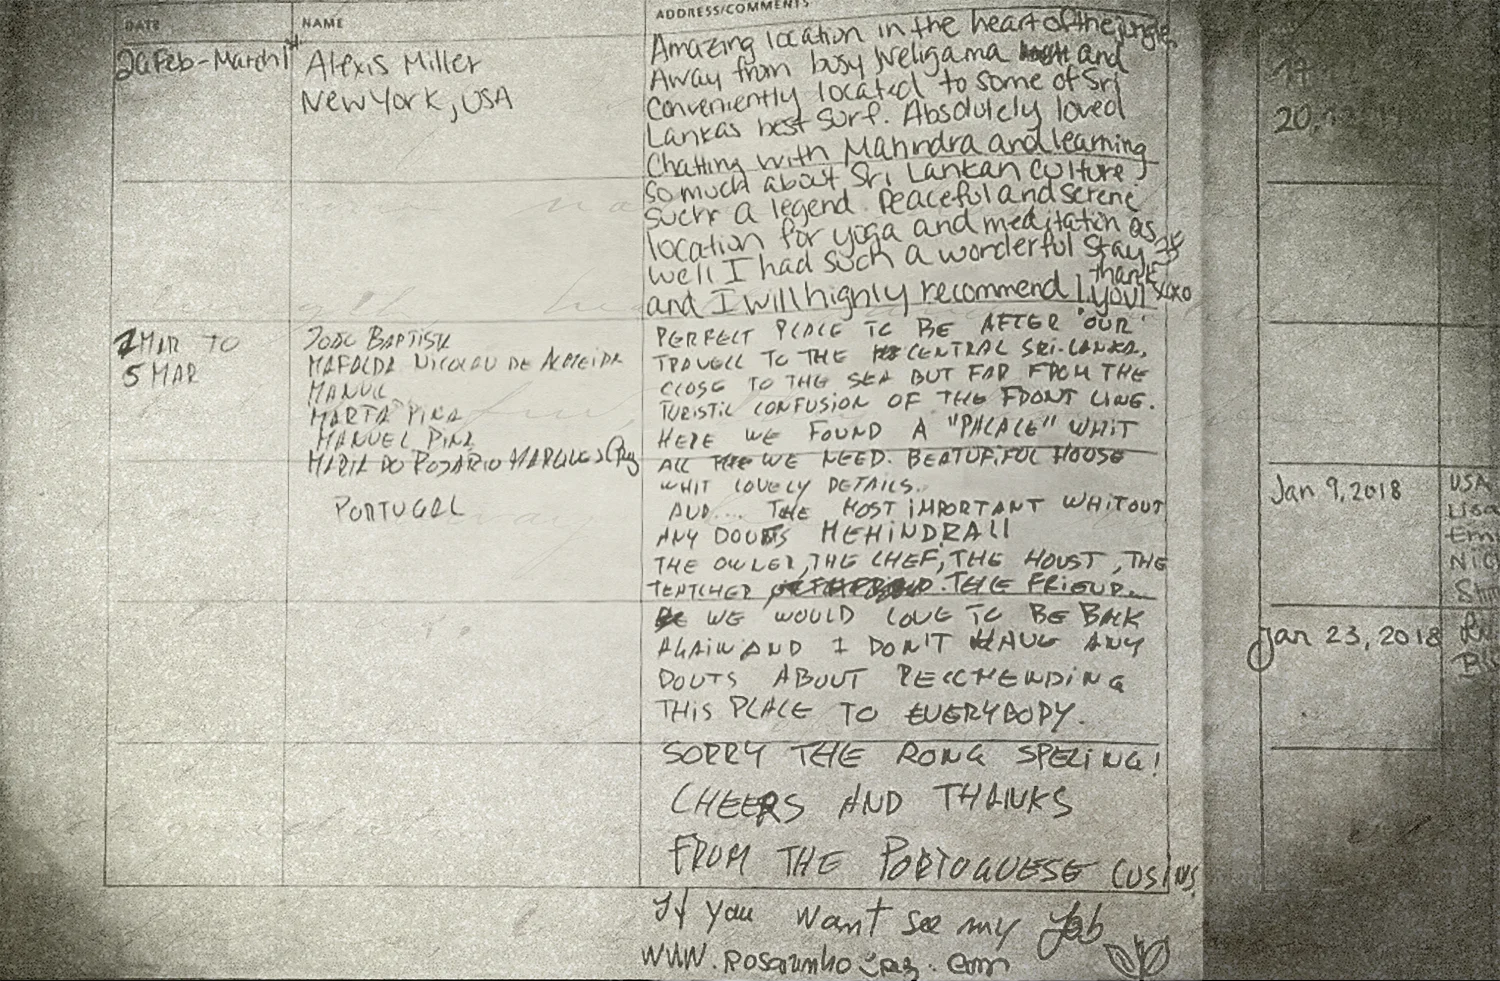 DATE NAME ADDRESS/COMMENTS
Feb - March 1st Alexis Miller
New York, USA
Amazing location in the heart of the jungle
Away from busy Weligama and
conveniently located to some of Sri
Lankas best surf. Absolutely loved
Chatting with Mahindra and learning
so much about Sri Lankan culture
such a legend. Peaceful and serene
location for yoga and meditation as
well I had such a wonderful stay
and I will highly recommend! thank you!
xoxo
2 MAR TO
5 MAR
JOÃO BAPTISTA
MAFALDA NICOLAU DE ALMEIDA
MANUEL
MARTA PINA
MANUEL PINA
MARIA DO ROSÁRIO MARQUES
PORTUGAL
PERFECT PLACE TO BE AFTER OUR
TRAVELL TO THE CENTRAL SRI-LANKA,
CLOSE TO THE SEA BUT FAR FROM THE
TURISTIC CONFUSION OF THE FRONT LINE.
HERE WE FOUND A "PALACE" WHIT
ALL WE NEED. BEATUFIFUL HOUSE
WHIT LOVELY DETAILS.
AND.... THE MOST IMPORTANT WHITOUT
ANY DOUBTS MEHINDRA!!
THE OWNER, THE CHEF, THE HOUST, THE
TEATCHER. THE FRIEND.
WE WOULD LOVE TO BE BACK
AGAIN AND I DON'T HAVE ANY
DOUTS ABOUT RECCMENDING
THIS PLACE TO EVERYBODY.
SORRY THE RONG SPELING!
CHEERS AND THANKS
FROM THE PORTOGUESE CUSINS.
If you want see my Job
20,
Jan 9, 2018
USA
Lisa
Jan 23, 2018